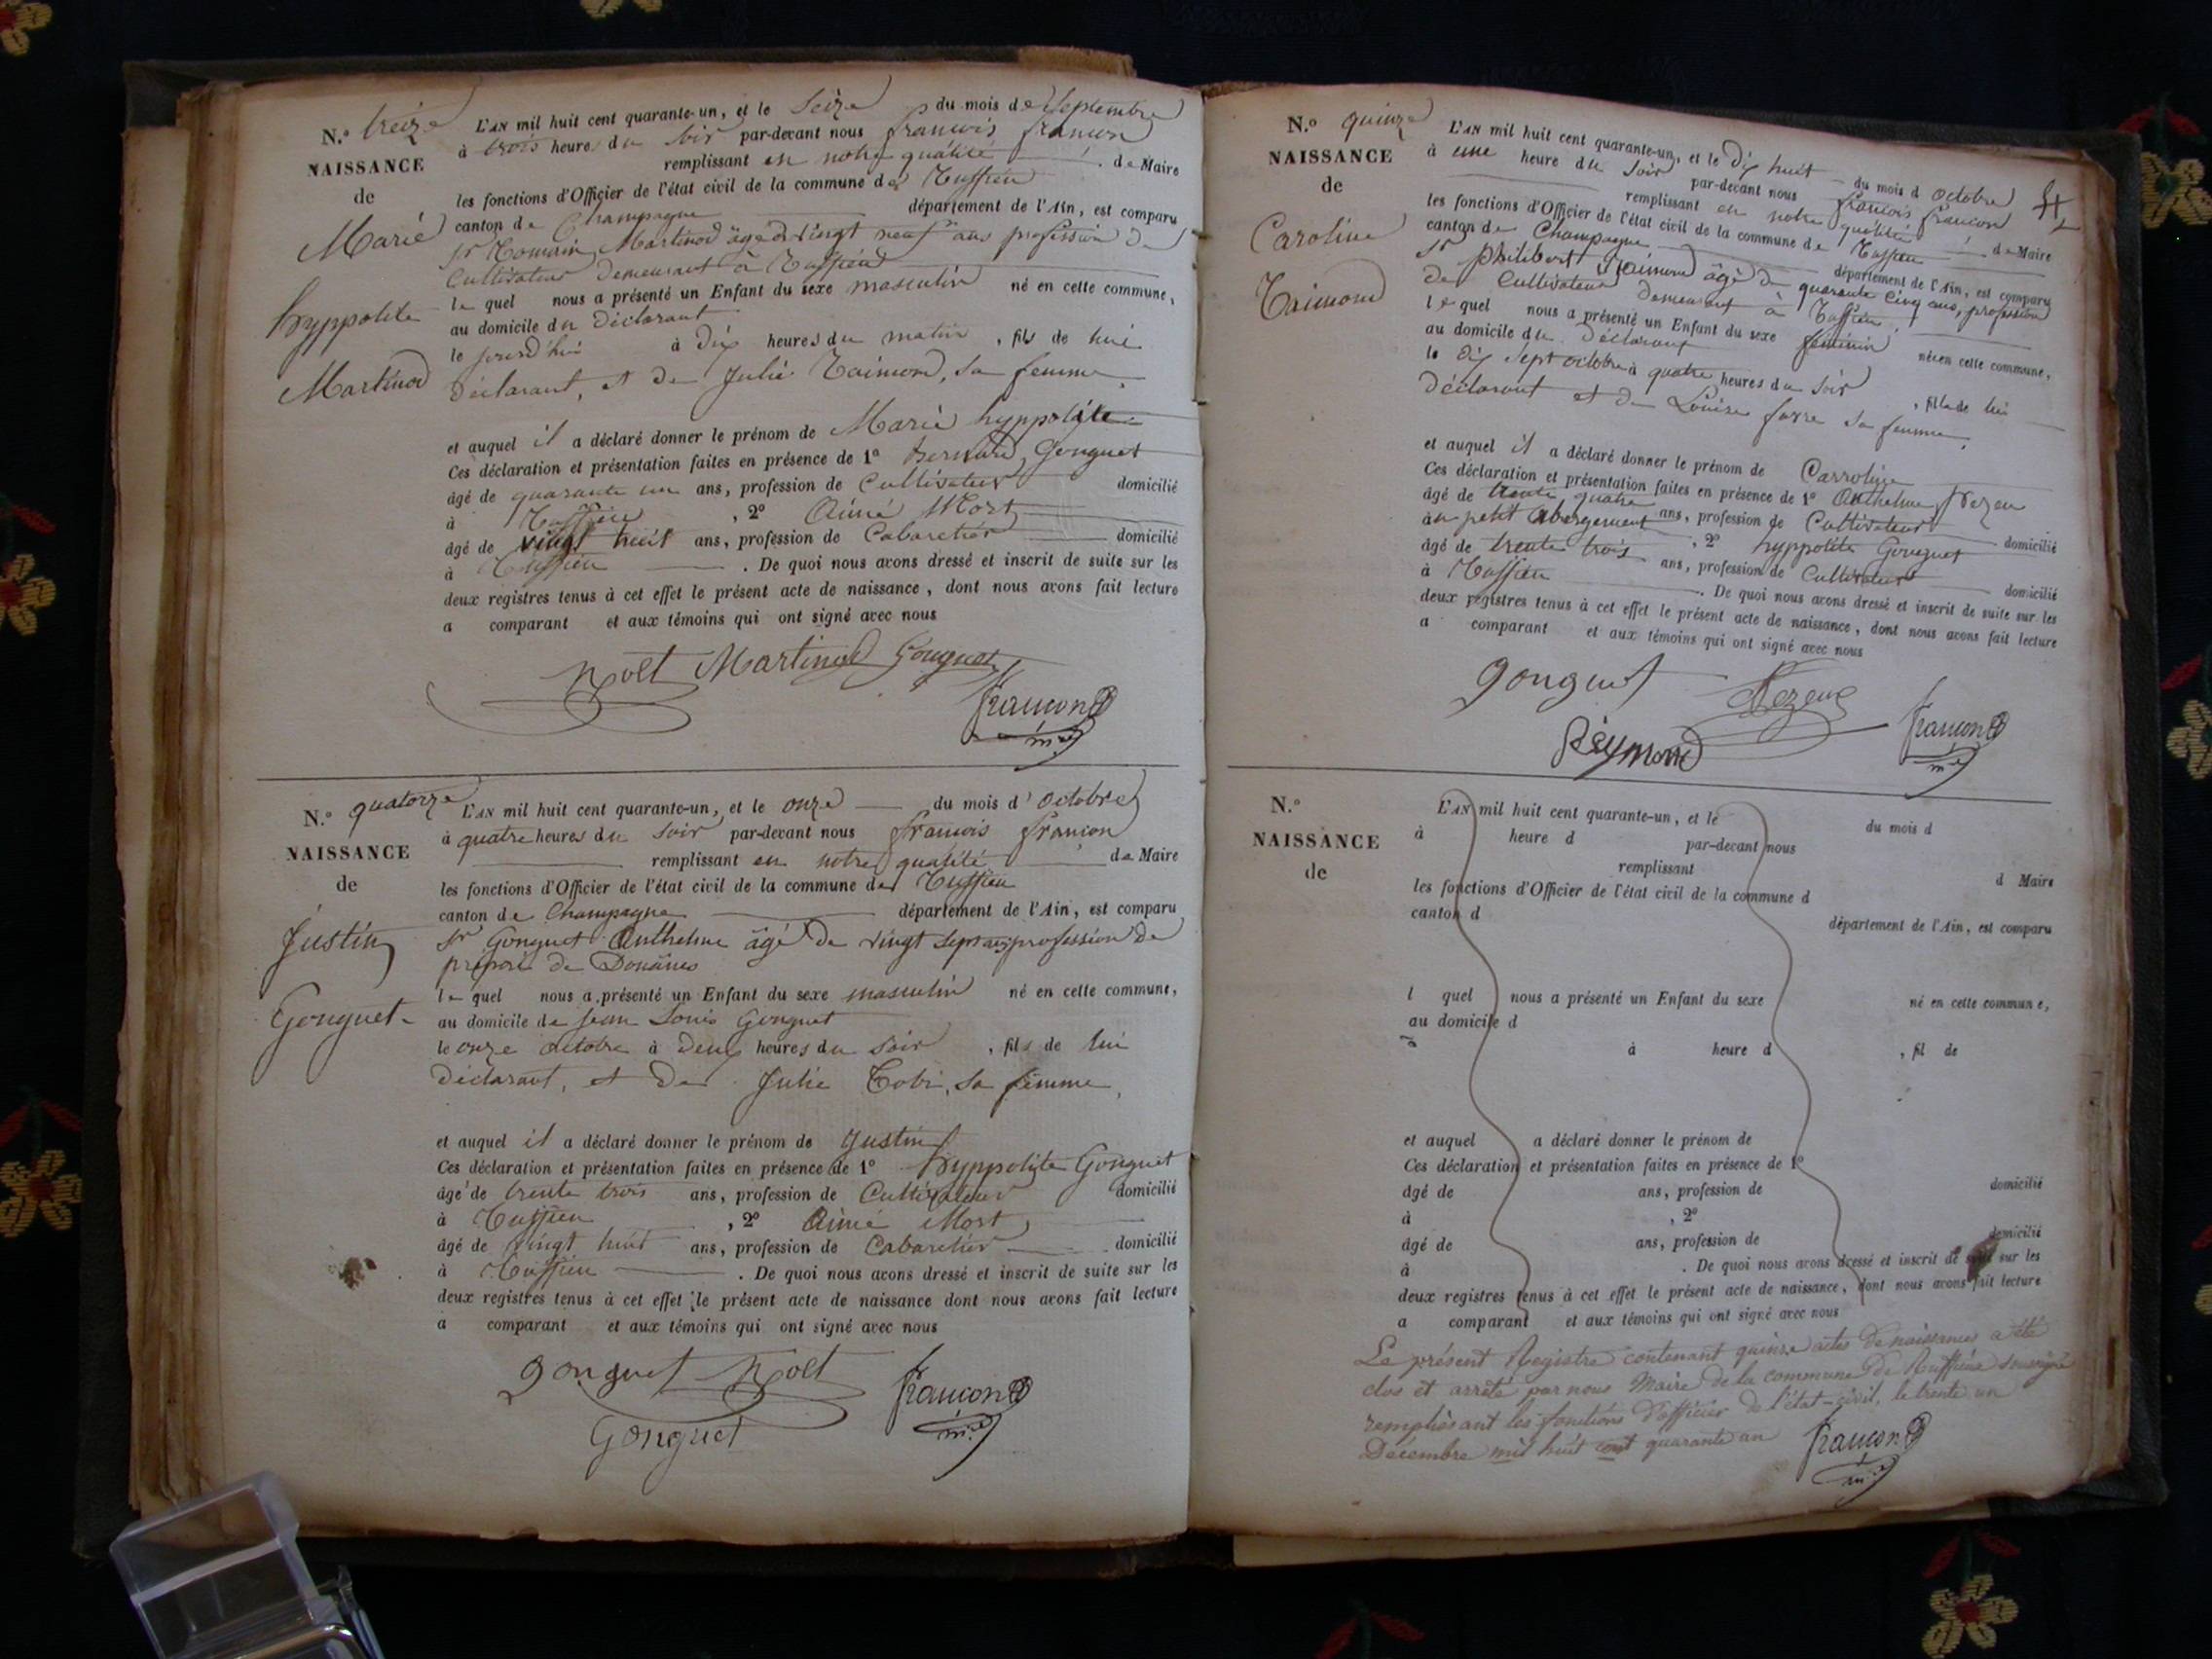 N.o treize
NAISSANCE
de
Marie
hyppolite
Martinod
L'AN mil huit cent quarante-un, et le Seize du mois de Septembre
à trois heures du soir par-devant nous françois françon
remplissant en notre qualité de Maire
les fonctions d'Officier de l'état civil de la commune de Ruffieu
canton de Champagne département de l'Ain, est comparu
Sr Romain Martinod âgé de vingt neuf ans profession de
Cultivateur demeurant à Ruffieu
le quel nous a présenté un Enfant du sexe masculin né en cette commune,
au domicile du Déclarant
le jourd'hui à dix heures du matin, fils de lui
Déclarant, et de Julie Raimond, sa femme,
et auquel il a déclaré donner le prénom de Marie hyppolite
Ces déclaration et présentation faites en présence de 1o Bernard Gonguet
âgé de quarante un ans, profession de Cultivateur domicilié
à Ruffieu, 2o Aimé Mort
âgé de vingt huit ans, profession de Cabaretier domicilié
à Ruffieu. De quoi nous avons dressé et inscrit de suite sur les
deux registres tenus à cet effet le présent acte de naissance, dont nous avons fait lecture
a comparant et aux témoins qui ont signé avec nous
Martinod Gonguet
françon
N.o quatorze
NAISSANCE
de
Justin
Gonguet
L'AN mil huit cent quarante-un, et le onze du mois d'octobre
à quatre heures du soir par-devant nous françois françon
remplissant en notre qualité de Maire
les fonctions d'Officier de l'état civil de la commune de Ruffieu
canton de Champagne département de l'Ain, est comparu
Sr Gonguet Anthelme âgé de vingt sept ans profession de
préposé de Douânes
le quel nous a présenté un Enfant du sexe masculin né en cette commune,
au domicile de Jean Louis Gonguet
le onze octobre à deux heures du soir, fils de lui
Déclarant, et de Julie Robin, sa femme,
et auquel il a déclaré donner le prénom de Justin
Ces déclaration et présentation faites en présence de 1o hyppolite Gonguet
âgé de trente trois ans, profession de Cultivateur domicilié
à Ruffieu, 2o Aimé Mort
âgé de vingt huit ans, profession de Cabaretier domicilié
à Ruffieu. De quoi nous avons dressé et inscrit de suite sur les
deux registres tenus à cet effet le présent acte de naissance dont nous avons fait lecture
a comparant et aux témoins qui ont signé avec nous
gonguet
françon
Gonguet
N.o quinze
NAISSANCE
de
Caroline
Raimond
L'AN mil huit cent quarante-un, et le dix huit du mois d octobre
à une heure du soir par-devant nous françois françon
remplissant en notre qualité de Maire
les fonctions d'Officier de l'état civil de la commune de Ruffieu
canton de Champagne département de l'Ain, est comparu
Sr philibert Raimond âgé de quarante cinq ans, profession
de Cultivateur demeurant à Ruffieu,
le quel nous a présenté un Enfant du sexe féminin née en cette commune,
au domicile du Déclarant
le dix sept octobre à quatre heures du soir, fille de lui
Déclarant et de Louise favre sa femme,
et auquel il a déclaré donner le prénom de Carroline
Ces déclaration et présentation faites en présence de 1o Anthelme
âgé de trente quatre ans, profession de Cultivateur
au petit abergement domicilié
, 2o hyppolite Gonguet
âgé de trente trois ans, profession de Cultivateur domicilié
à Ruffieu. De quoi nous avons dressé et inscrit de suite sur les
deux registres tenus à cet effet le présent acte de naissance, dont nous avons fait lecture
a comparant et aux témoins qui ont signé avec nous
gonguet
Réymond
françon
N.o
NAISSANCE
de
L'AN mil huit cent quarante-un, et le du mois d
à heure d par-devant nous
remplissant d Maire
les fonctions d'Officier de l'état civil de la commune d
canton d département de l'Ain, est comparu
l quel nous a présenté un Enfant du sexe né en cette commune,
au domicile d
le à heure d, fil de
et auquel a déclaré donner le prénom de
Ces déclaration et présentation faites en présence de 1o
âgé de ans, profession de domicilié
à, 2o
âgé de ans, profession de domicilié
à. De quoi nous avons dressé et inscrit de suite sur les
deux registres tenus à cet effet le présent acte de naissance, dont nous avons fait lecture
a comparant et aux témoins qui ont signé avec nous
Le présent Registre contenant quinze actes de naissances a été
clos et arrêté par nous Maire de la commune de Ruffieu soussigné
remplissant les fonctions d'officier de l'état-civil, le trente un
Décembre mil huit cent quarante un
françon